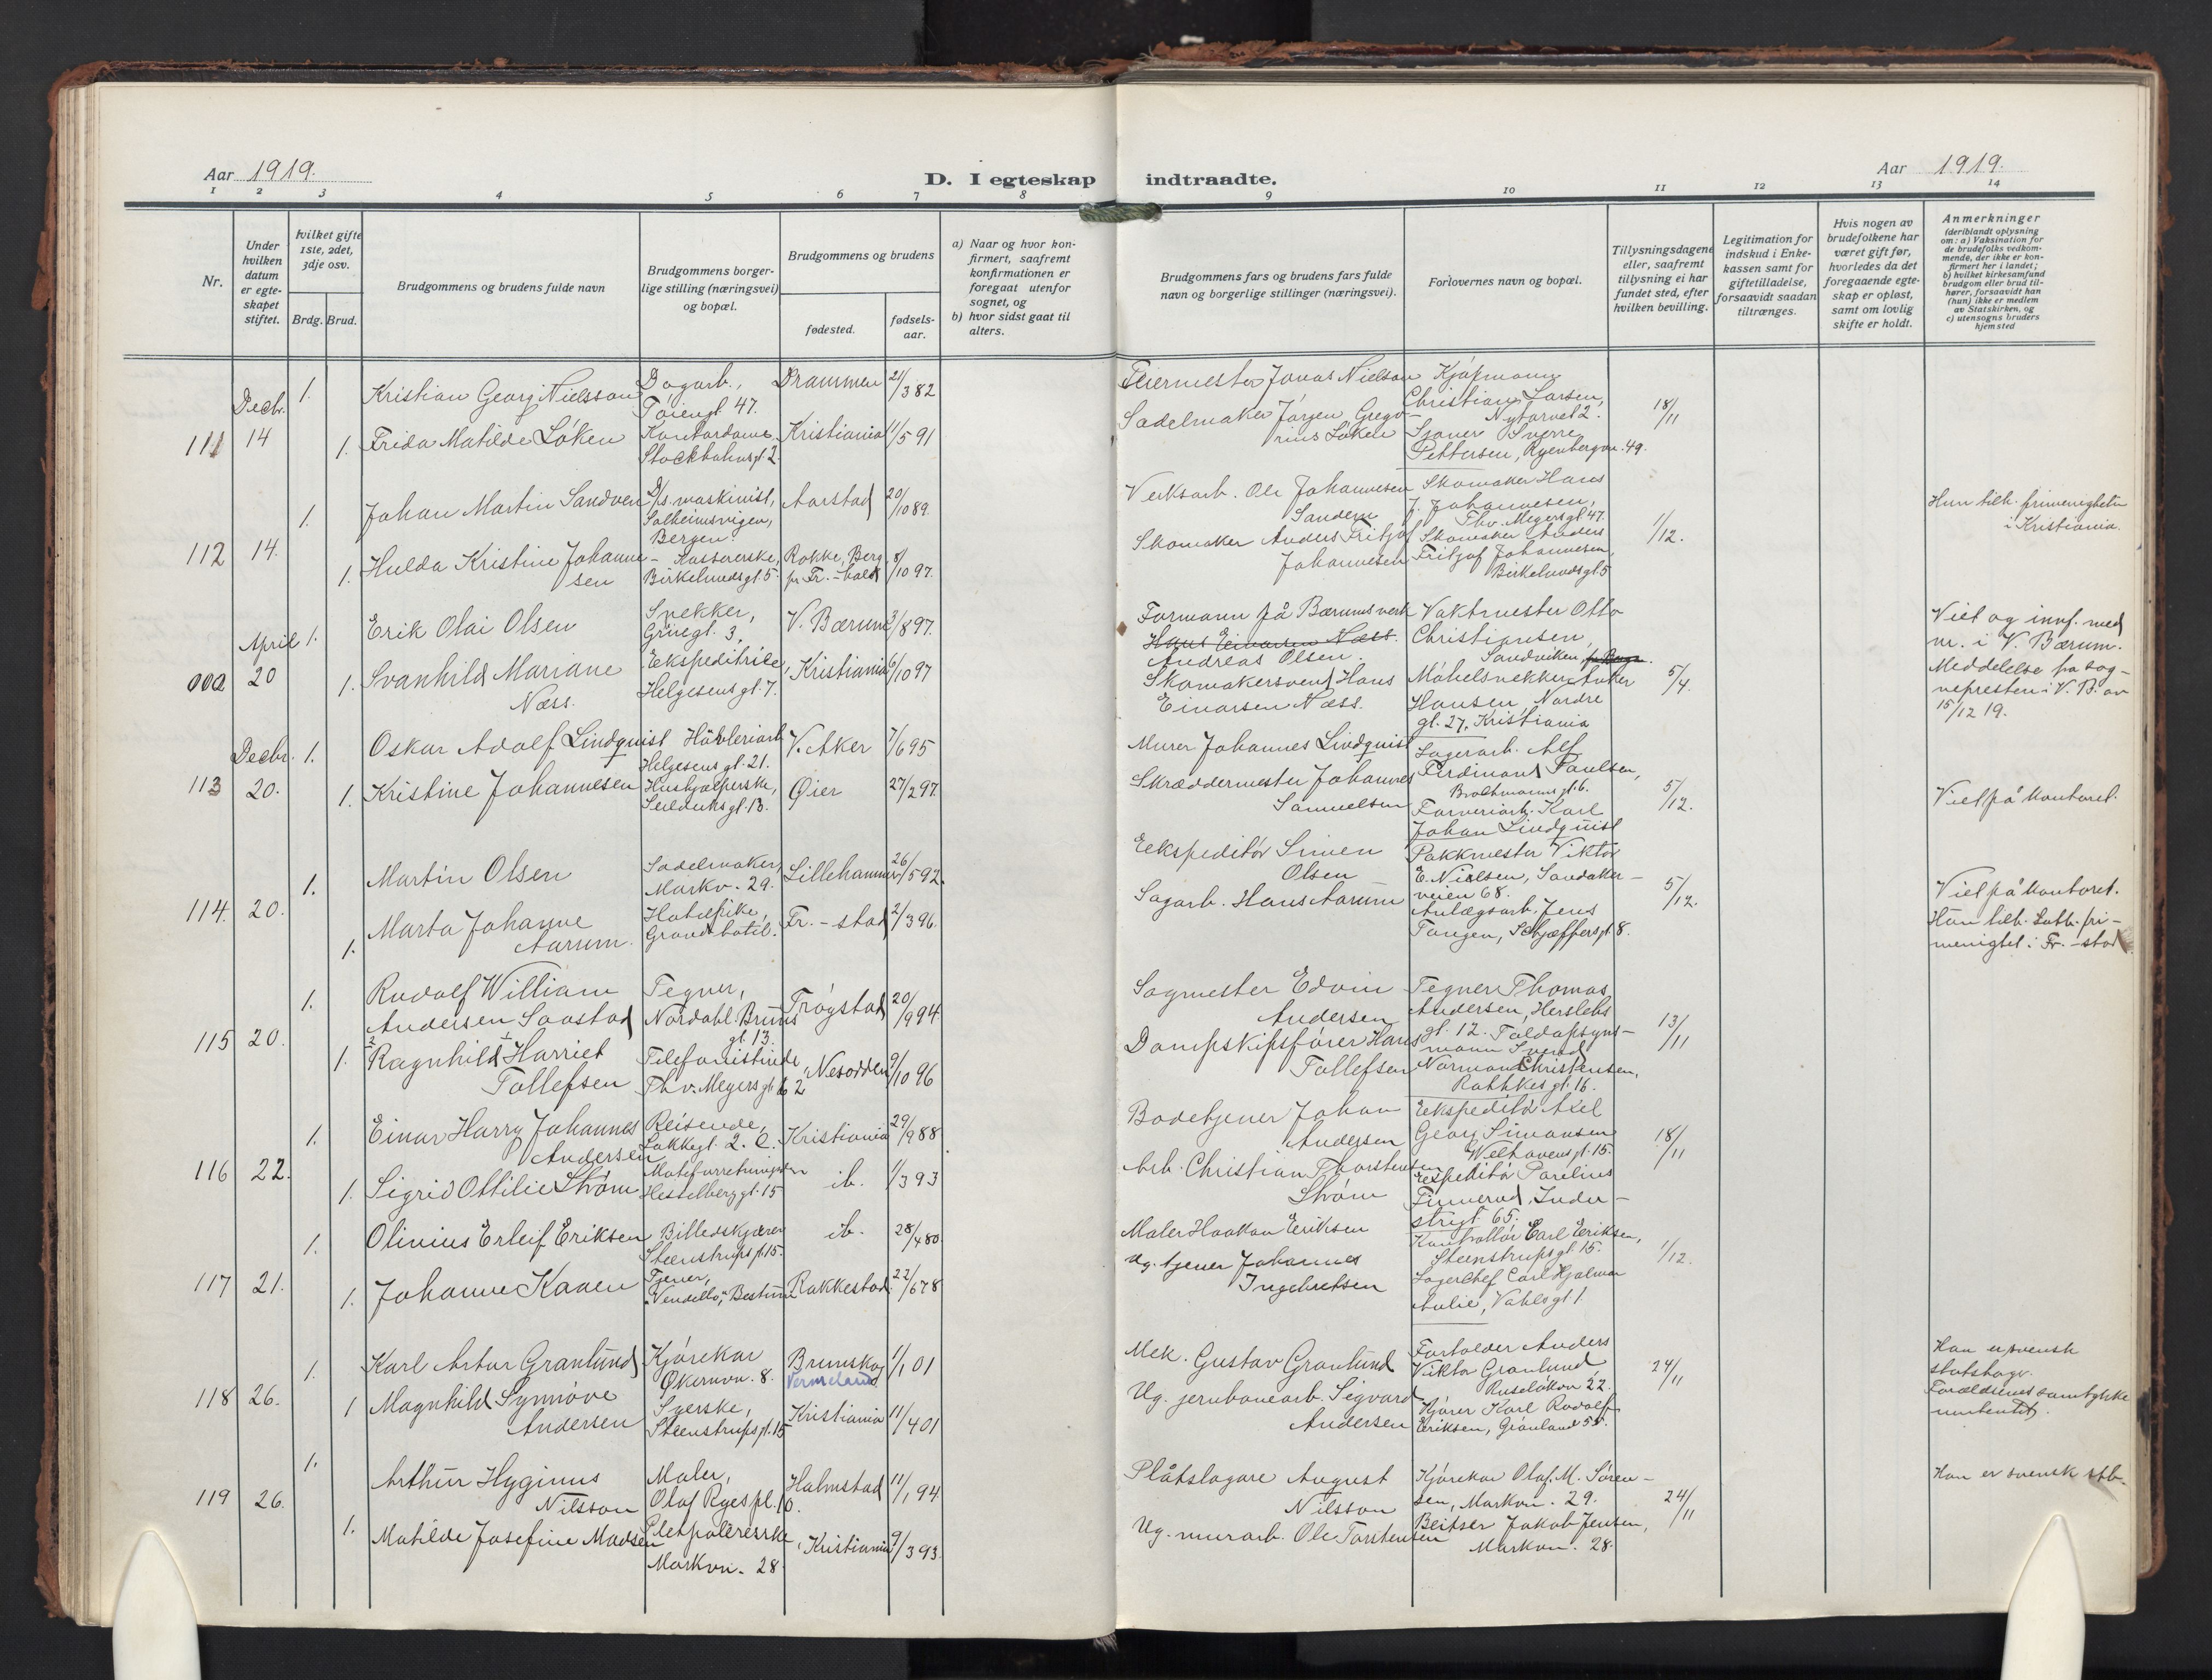 Aar 1919.
D. I egteskap indtraadte.
Aar 1919.
1 2 3 4 5 6 7 8 9 10 11 12 13 14
Nr.
Under hvilken datum er egteskapet stiftet.
hvilket gifte 1ste, 2det, 3dje osv.
Brdg. Brud.
Brudgommens og brudens fulde navn
Brudgommens borgerlige stilling (næringsvei) og bopæl.
Brudgommens og brudens
fødested.
fødselsaar.
a) Naar og hvor konfirmert, saafremt konfirmationen er foregaat utenfor sognet, og
b) hvor sidst gaat til alters.
Brudgommens fars og brudens fars fulde navn og borgerlige stillinger (næringsvei).
Forlovernes navn og bopæl.
Tillysningsdagene eller, saafremt tillysning ei har fundet sted, efter hvilken bevilling.
Legitimation for indskud i Enkekassen samt for giftetilladelse, forsaavidt saadan tiltrænges.
Hvis nogen av brudefolkene har været gift før, hvorledes da det foregaaende egteskap er opløst, samt om lovlig skifte er holdt.
Anmerkninger (deriblandt oplysning om: a) Vaksination for de brudefolks vedkommende, der ikke er konfirmert her i landet; b) hvilket kirkesamfund brudgom eller brud tilhører, forsaavidt han (hun) ikke er medlem av Statskirken, og c) utensogns bruders hjemsted
111 Decbr. 14
1. Kristian Georg Nielsson
Dagarb., Tøiengt. 47.
Drammen 21/3 82
Feiermester Jonas Nielson
Kjøpmann Christian Larsen, Nytorvet 2.
18/11
1. Frida Matilde Løken
Kontordame, Stockholmsgt. 2
Kristiania 11/5 91
Sadelmaker Jørgen Gregorius Løken
Sverre Pettersen, Ryenbergvn. 49.
112 14.
1. Johan Martin Sandven
D/s. maskinist, Solheimsvigen, Bergen.
Aarstad 20/10 89.
Verksarb. Ole Johannesen Sandven
Skomaker Hans J. Johannesen, Thv. Meyersgt. 47.
1/12.
Hun tilh. frimenigheten i Kristiania.
1. Hulda Kristine Johannesen
Birkelundsgt. 5.
Rokke, Berg pr Fr.-hald 8/10 97.
Skomaker Anders Fritjof Johannesen
Skomaker Anders Fritjof Johannesen, Birkelundsgt 5
000 April 20
1. Erik Olai Olsen
Snekker, Grünegt. 3.
V. Bærum 3/8 97.
Formann på Bærumsverk Hans Einarsen Næss. Andreas Olsen.
Vaktmester Otto Christiansen, Sandviken
5/4.
Viet og innf. med nr. i V. Bærum. Meddelelse fra sognepresten i V. B. av 15/12 19.
1. Svanhild Mariane Næss.
Ekspeditrice, Helgesens gt. 7.
Kristiania 6/10 97
Skomakersvend Hans Einarsen Næss.
Møbelsnekker Anker Hansen, Nordre gt. 27, Kristiania
113 Decbr. 20.
1. Oskar Adolf Lindquist
Høvleriarb. Helgesens gt. 21.
V. Aker 7/6 95
Murer Johannes Lindquist
Lagerarb. Alf Ferdinand Paulsen, Brochmannsgt. 6.
5/12.
Viet på kontoret.
1. Kristine Johannesen
Hushjælperske, Seilduksgt. 13.
Øier 27/2 97.
Skræddermester Johannes Samuelsen
Farveriarb. Karl Johan Lindquist
114. 20.
1. Martin Olsen
Sadelmaker, Markv. 29.
Lillehammer 26/5 92.
Ekspeditør Simen Olsen
Pakkmester Viktor E. Nielsen, Sandakerveien 68.
5/12.
Viet på kontoret. Hun tilh. Luth. frimenighet i Fr.-stad
1. Marta Johanne Aarum.
Hotelpike, Grand hotel.
Fr.-stad 2/3 96.
Sagarb. Hans Aarum
Anlægsarb. Jens Tangen, Schjæffersgt 8.
115 20.
1. Rudolf William Andersen Saastad
Tegner, Nordahl Bruns gt. 13.
Trøgstad 20/9 94
Sagmester Edvin Andersen
Tegner Thomas Andersen, Herslebs gt. 12.
13/11
1. Ragnhild Harriet Tollefsen
Telefonistinde, Th. v. Meyersgt. 62
Nesodden 9/10 96
Dampskipsfører Hans Tollefsen
Toldopsynsmann Norman Christensen, Rathkes gt. 16.
116 22.
1. Einar Harry Johannes Andersen
Reisende, Lakkegt. 2. C.
Kristiania 29/9 88
Badetjener Johan Andersen
Ekspeditør Axel Georg Simonsen Welhavensgt. 15.
18/11
1. Sigrid Ottilie Strøm
Hesselberggt. 15
ib. 1/3 93
Arb. Christian Thorstensen Strøm
Ekspeditør Parelius Finnerud, Industrigt 65.
117 21.
1. Olinius Erleif Eriksen
Billedskjærer Steenstrupsgt. 15.
ib. 28/4 80
Maler Haakon Eriksen
Kontrollør Carl Eriksen, Steenstrupsgt. 15.
1/12.
1. Johanne Kaaen
Tjener, "Vendello", Bestum
Rakkestad. 22/6 78
Ug. tjener Johannes Ingebretsen
Lagerchef Carl Hjalmar Aulie, Vahlsgt 1.
118 26.
1. Karl Artur Granlund
Kjørekar Økernvn. 8.
Brunskog Vermeland 1/1 01
Mek. Gustav Granlund
Forholder Anders Viktor Granlund Ruseløkvn 22.
24/11
Han er svensk statsborger. Forældrenes samtykke innhentet.
1 Magnhild Synnøve Andersen
Syerske, Steenstrupsgt. 15
Kristiania 11/4 01
Ug. jernbanearb. Sigvard Andersen
Kjører Karl Rudolf Eriksen, Grønland 55.
119 26.
1. Arthur Hyginus Nilsson
Maler, Olaf Ryespl. 10.
Halmstad 11/1 94
Plåtslagare August Nilsson
Kjørekar Olaf. M. Sørensen, Markvn. 29.
24/11
Han er svensk stb.
1. Mathilde Josefine Madsen
Pletpolererske, Markvn. 28
Kristiania 9/3 93.
Ug. murarb. Ole Torstensen
Beitser Jakob Jensen, Markvn. 28.